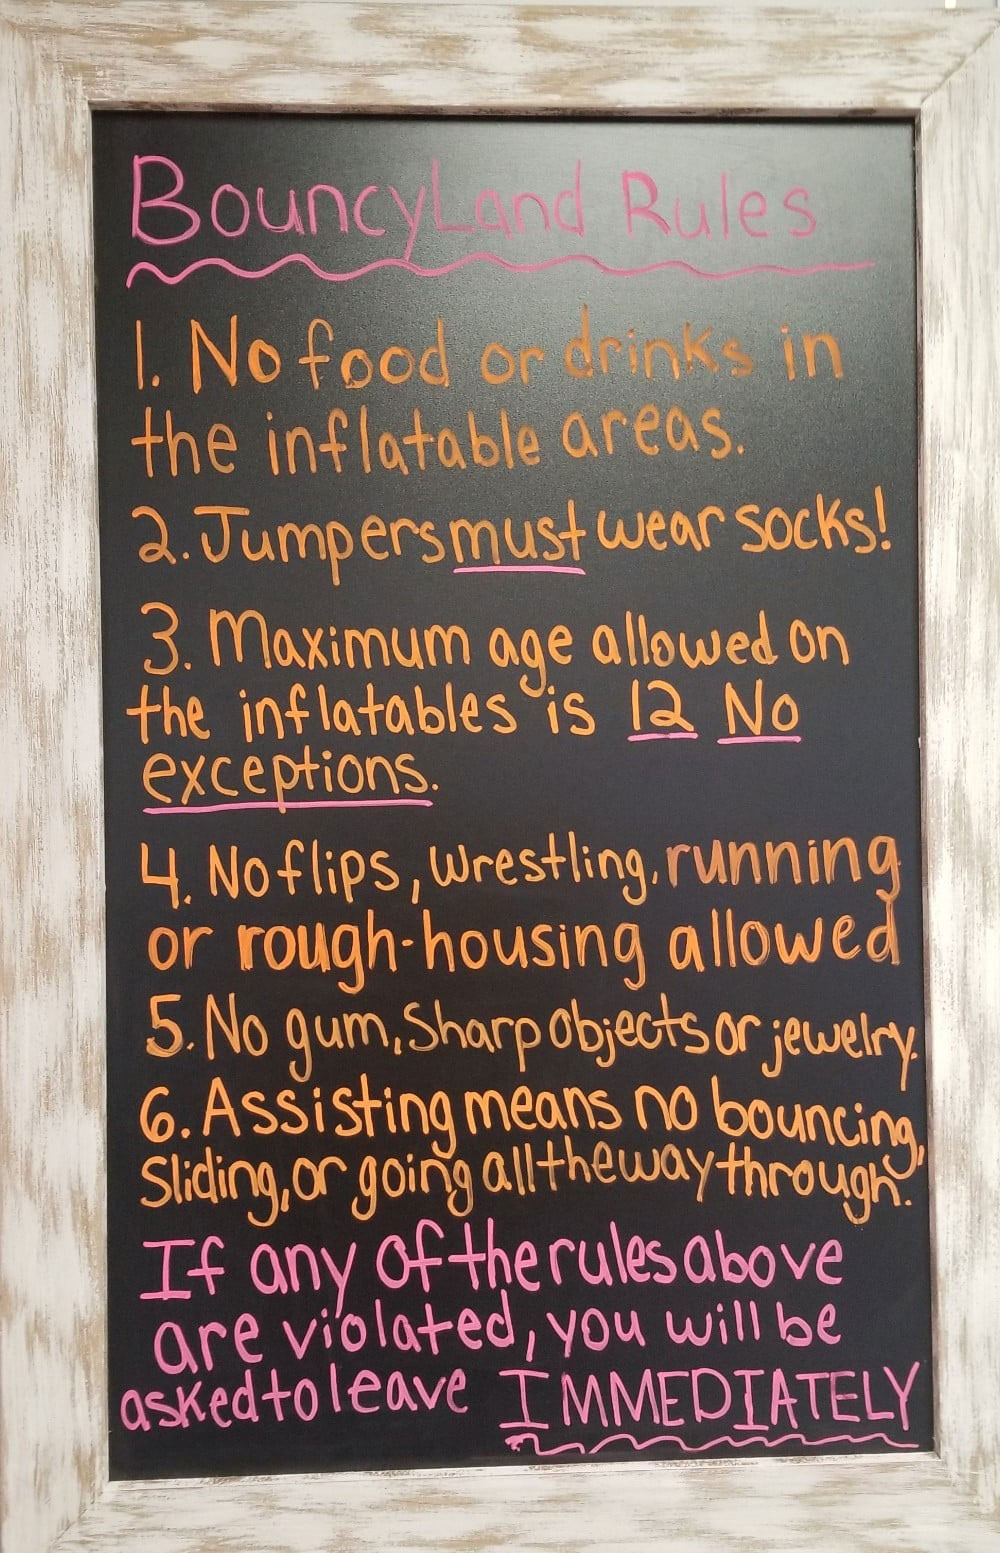 BouncyLand Rules
1. No food or drinks in
the inflatable areas.
2. Jumpers must wear socks!
3. Maximum age allowed on
the inflatables is 12 No
exceptions.
4. No flips, wrestling, running
or rough-housing allowed
5. No gum, Sharp objects or jewelry.
6. Assisting means no bouncing,
Sliding, or going all the way through.
If any of the rules above
are violated, you will be
asked to leave IMMEDIATELY